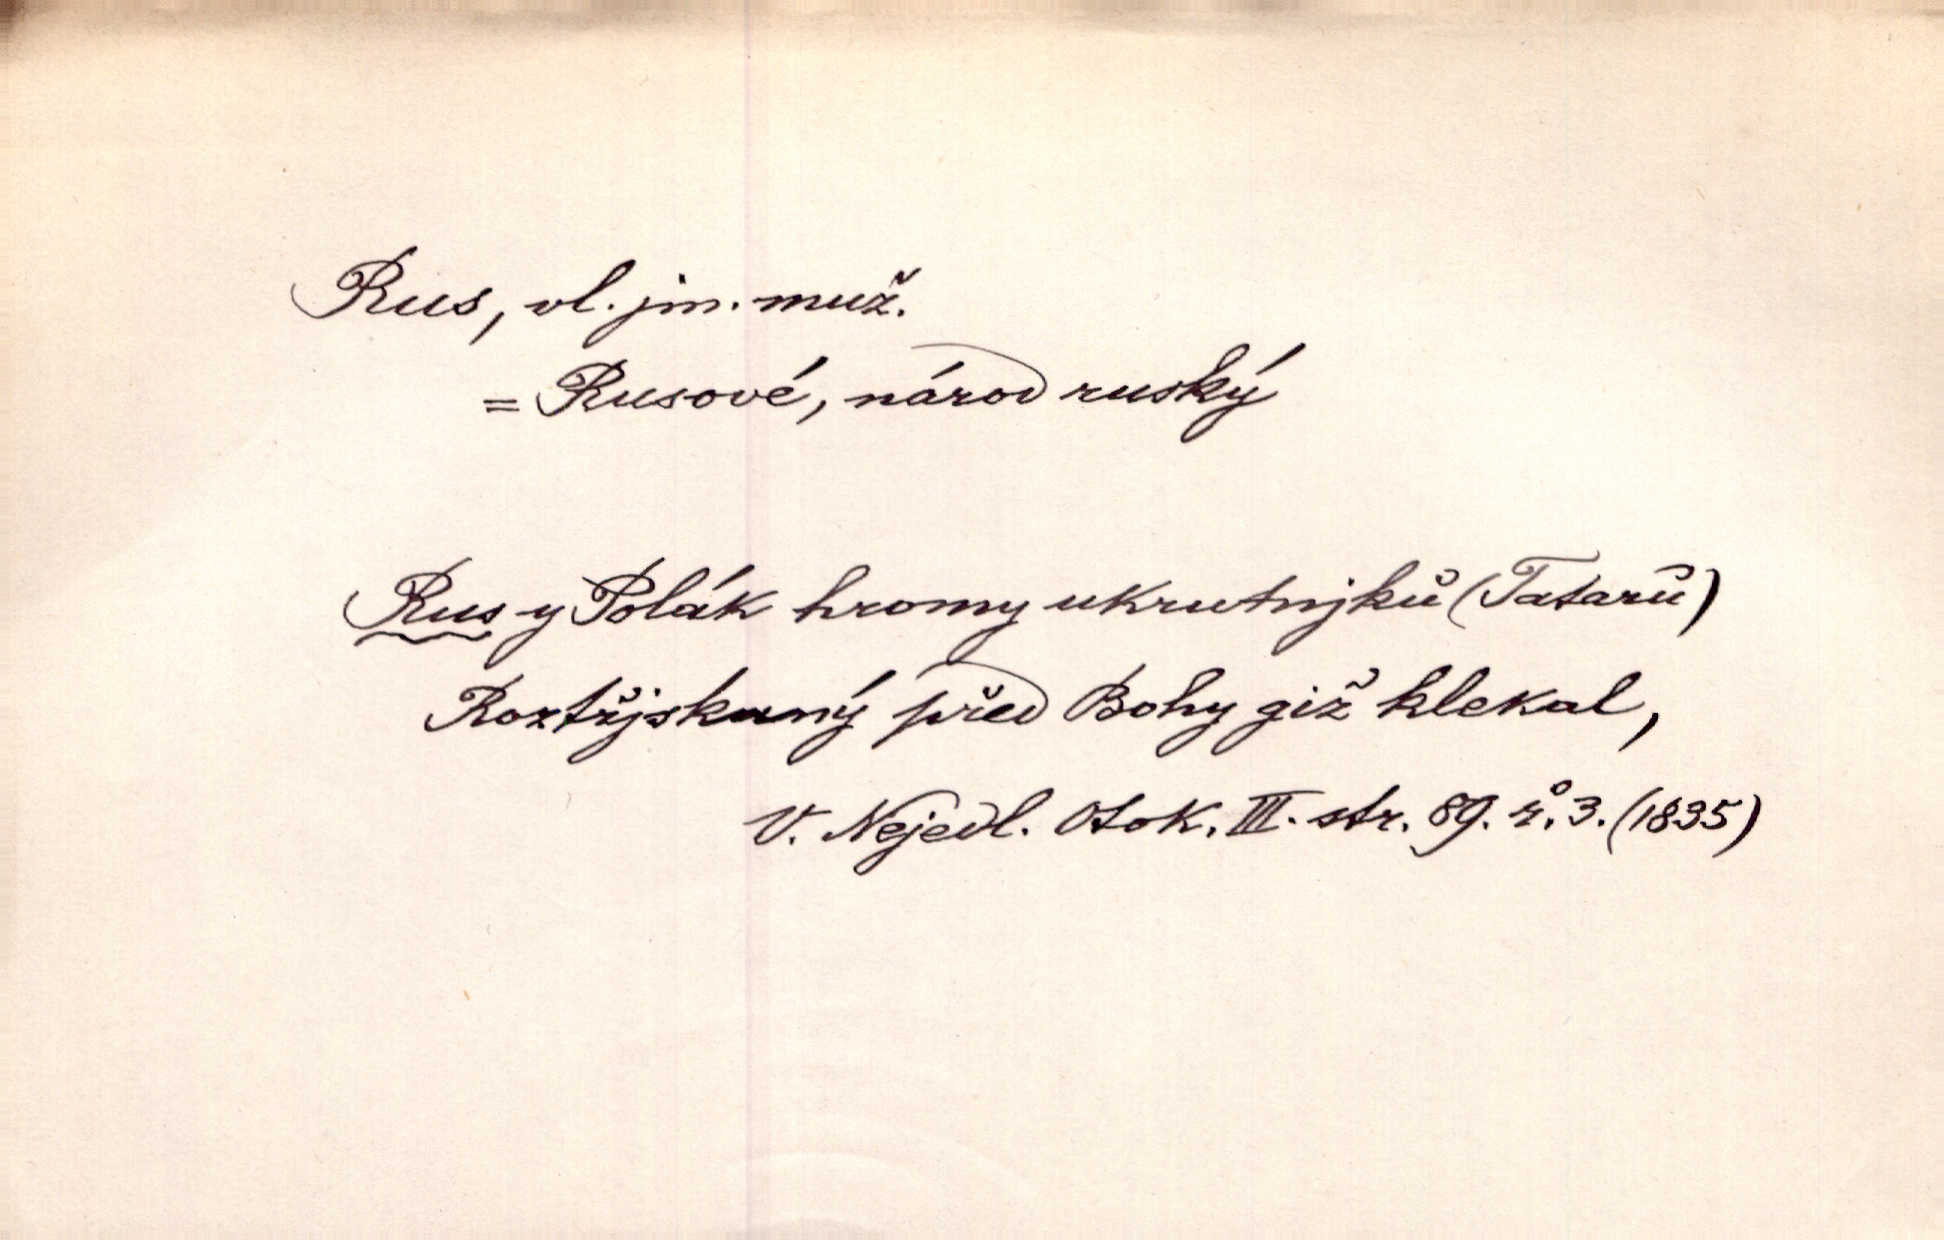 Rus, vl. jm. muž.
= Rusové, národ ruský
Rus y Polák hromy ukrutnjků (Tatarů)
Roztřjskaný před Bohy giž klekal,
V. Nejedl. Otok. III. str. 89. ř. 3. (1835)